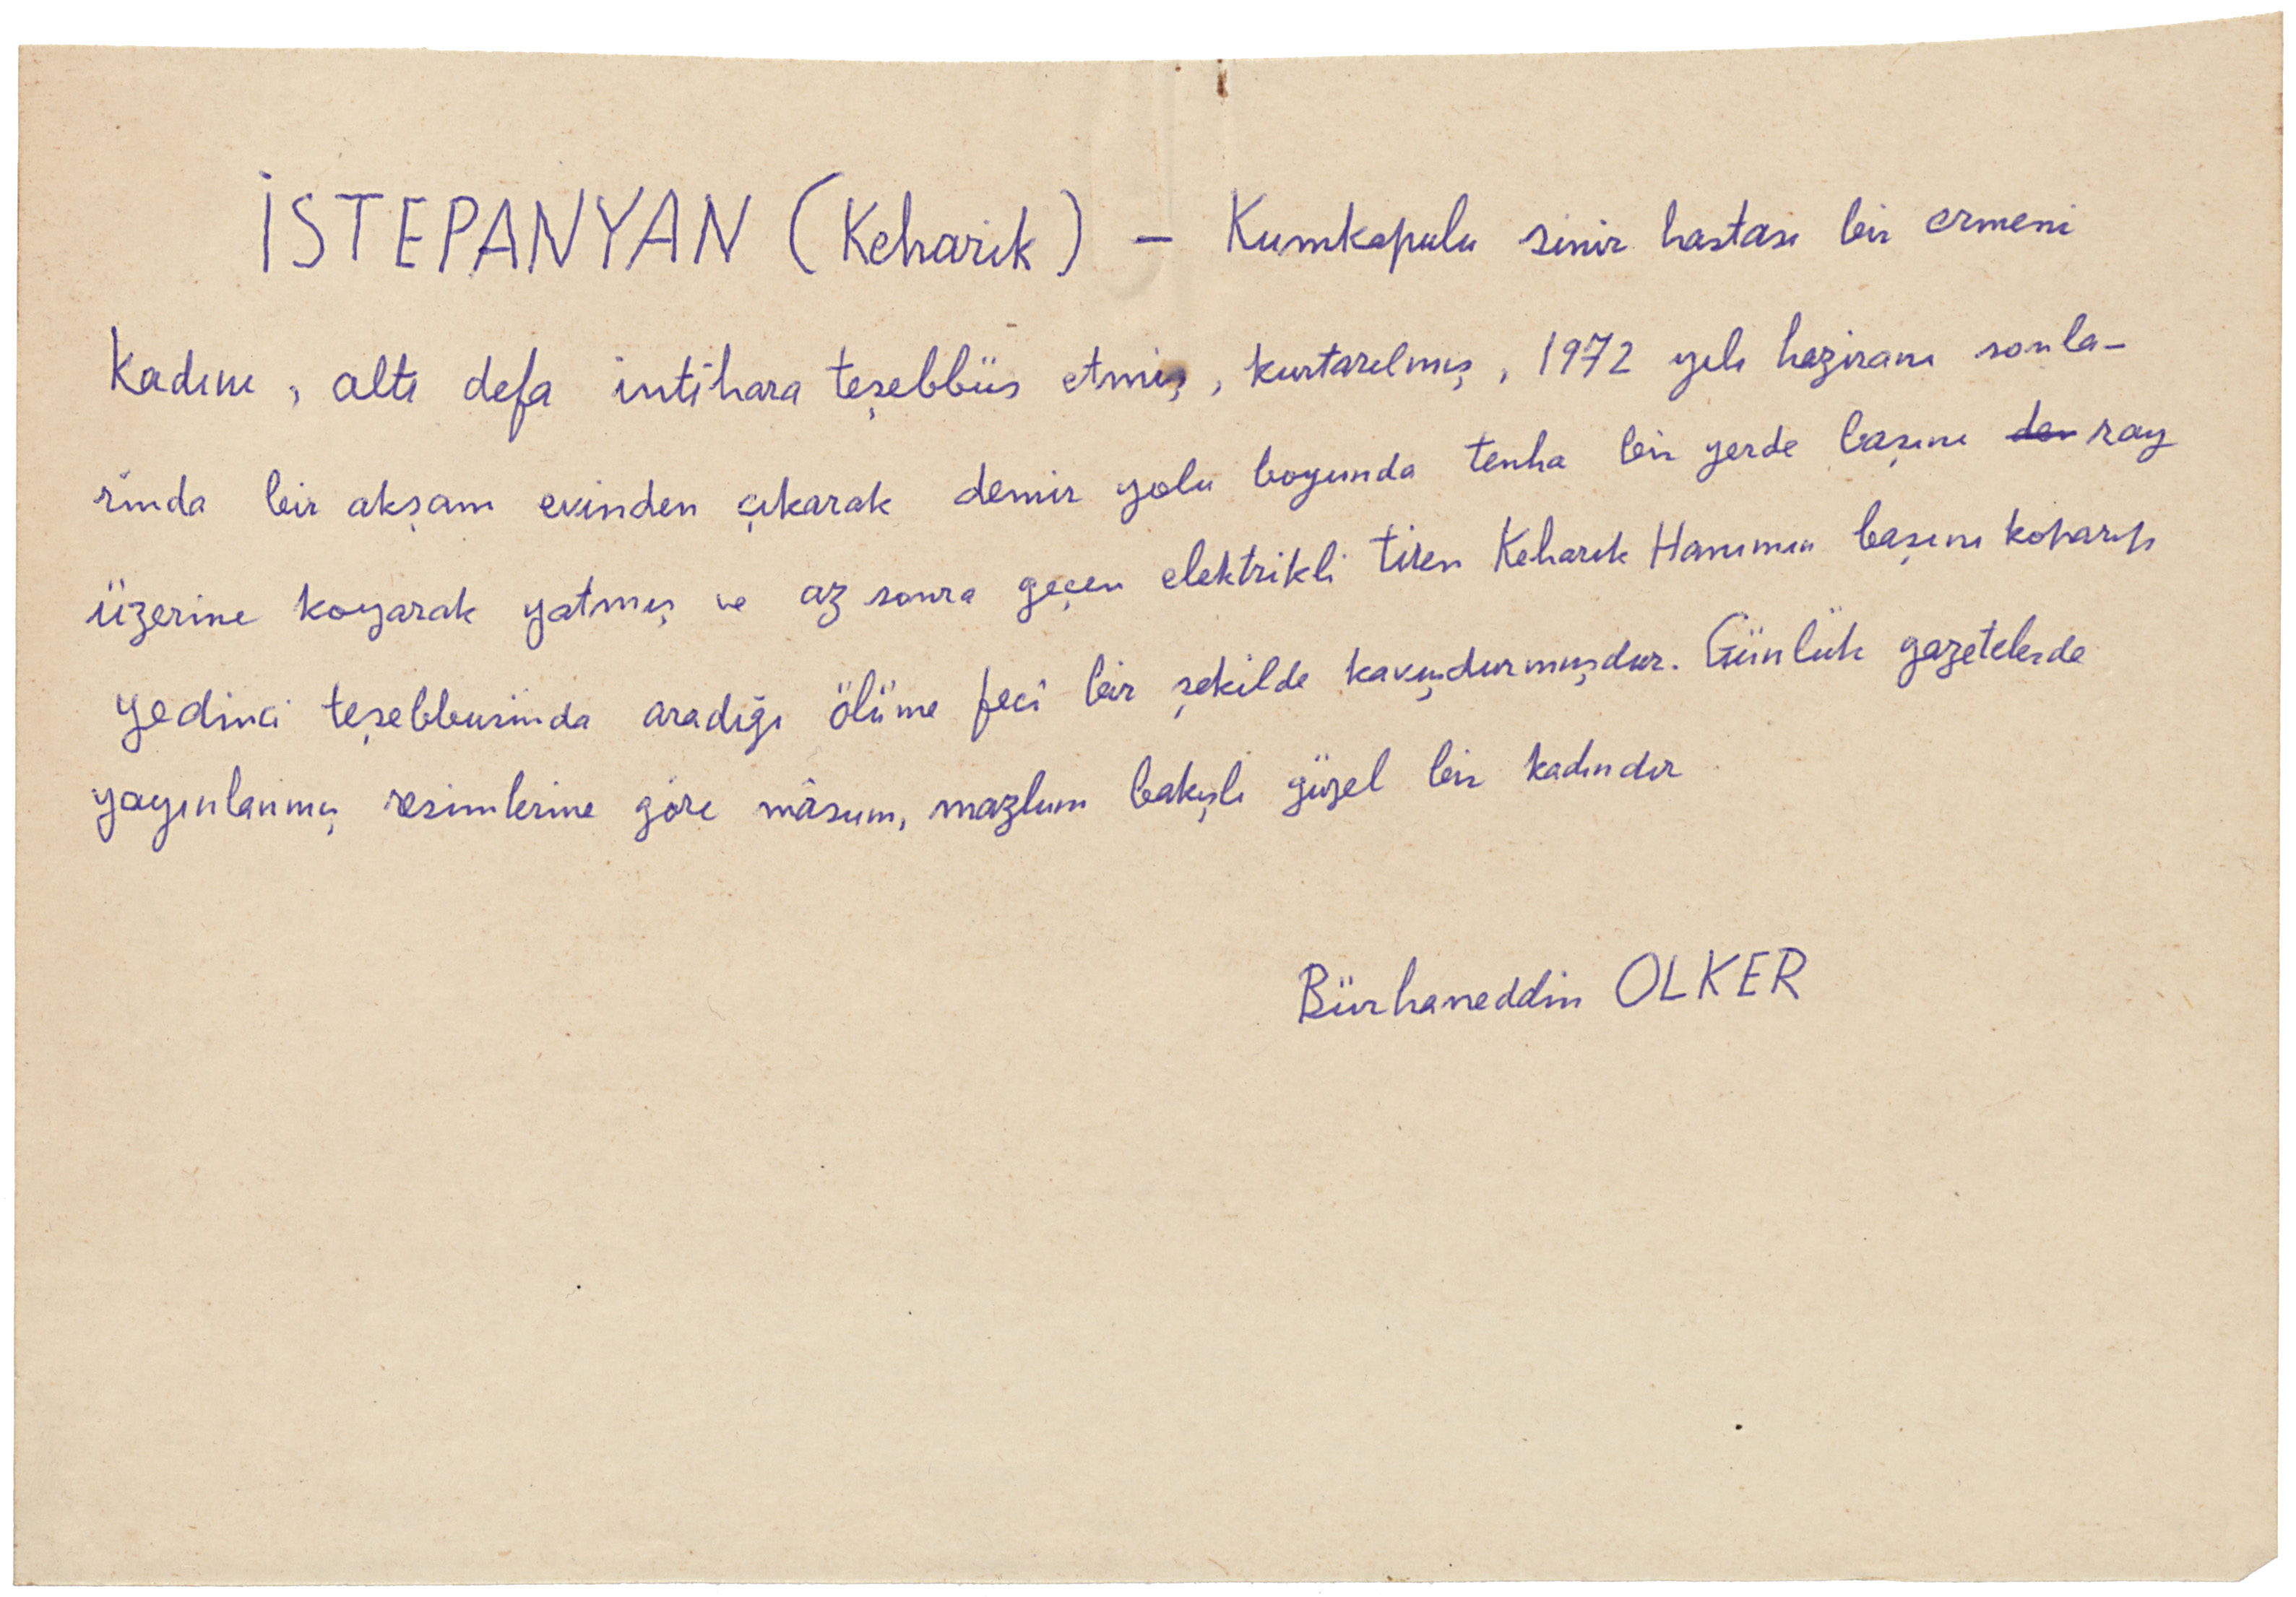 İSTEPANYAN (Keharik) – Kumkapulu sinir hastası bir ermeni
kadını, altı defa intihara teşebbüs etmiş, kurtarılmış, 1972 yılı haziranı sonla-
rında bir akşam evinden çıkarak demir yolu boyunda tenha bir yerde başını ray
üzerine koyarak yatmış ve az sonra geçen elektrikli tiren Keharik Hanımın başını koparıp
yedinci teşebbusinda aradığı ölüme feci bir şekilde kavuşdurmuşdur. Günlük gazetelerde
yayınlanmış resimlerine göre mâsum, mazlum bakışlı güzel bir kadındır
Bürhaneddin OLKER